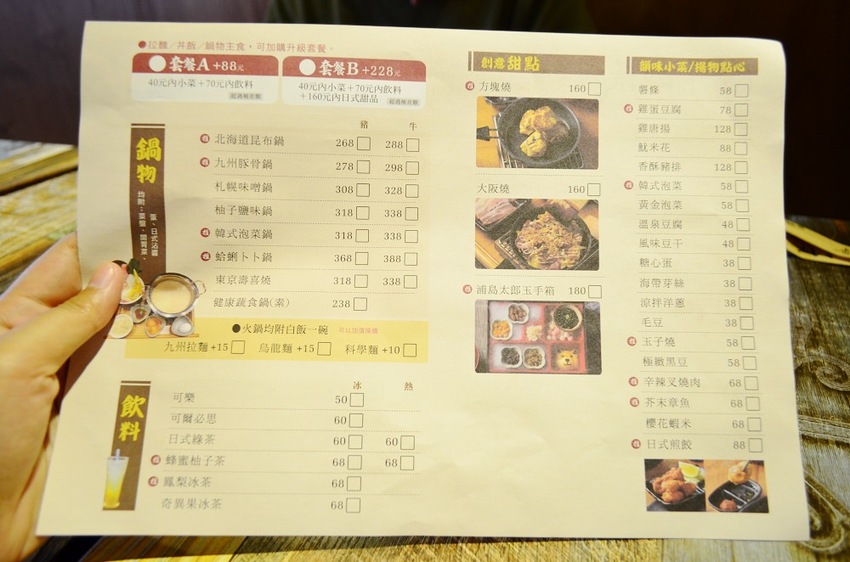 ●拉麵/丼飯/鍋物主食,可加購升級套餐。
套餐A+88元
40元內小菜+70元內飲料
超過補差額
套餐B+228元
40元內小菜+70元內飲料
+160元內日式甜品
超過補差額
鍋物
豬 牛
北海道昆布鍋 268 288
九州豚骨鍋 278 298
札幌味噌鍋 308 328
柚子鹽味鍋 318 338
韓式泡菜鍋 318 338
蛤蜊卜卜鍋 368 388
東京壽喜燒 318 338
健康蔬食鍋(素) 238
●火鍋均附白飯一碗 可以加價換購
九州拉麵+15 烏龍麵+15 科學麵+10
飲料
冰 熱
可樂 50
可爾必思 60
日式綠茶 60 60
蜂蜜柚子茶 68 68
鳳梨冰茶 68
奇異果冰茶 68
創意甜點
方塊燒 160
大阪燒 160
浦島太郎玉手箱 180
韻味小菜/揚物點心
薯條 58
雞蛋豆腐 78
雞唐揚 128
魷米花 88
香酥豬排 128
韓式泡菜 58
黃金泡菜 58
溫泉豆腐 48
風味豆干 48
糖心蛋 38
海帶芽絲 38
涼拌洋蔥 38
毛豆 38
玉子燒 58
極緻黑豆 58
辛辣叉燒肉 68
芥末章魚 68
櫻花蝦米 68
日式煎餃 88